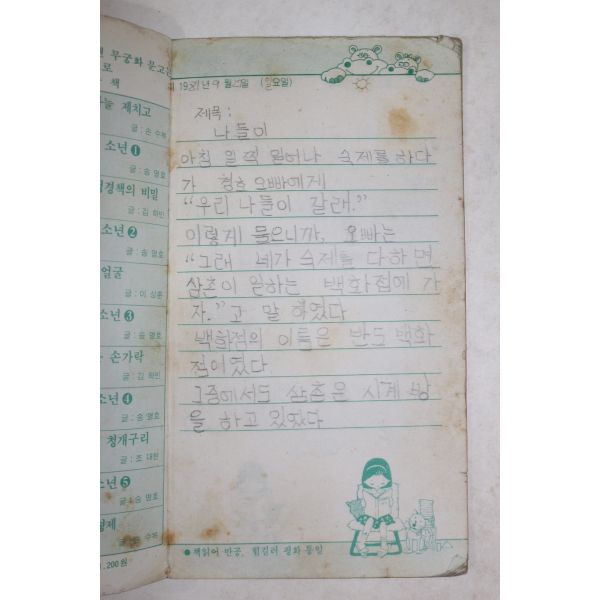 전 무궁화 문고
로
책
하늘 제치고
글: 손 수복
소년❶
글: 송 명호
경책의 비밀
글: 김 학민
소년❷
글: 송 명호
얼굴
글: 이 상훈
소년❸
글: 송 명호
손가락
글: 김 학민
소년❹
글: 송 명호
청개구리
글: 조 대현
소년❺
글: 송 명호
글: 손 수복
1,200원
1981년 9월 일 (일요일)
제목:
나들이
아침 일찍 일어나 숙제를 하다
가 형호 오빠에게
"우리 나들이 갈래."
이렇게 물으니까, 오빠는
"그래 네가 숙제를 다하면
삼촌이 일하는 백화점에 가
자."고 말 하였다
백화점의 이름은 반도 백화
점이였다
그중에서도 삼촌은 시계 방
을 하고 있었다
● 책읽어 반공, 힘길러 평화 통일